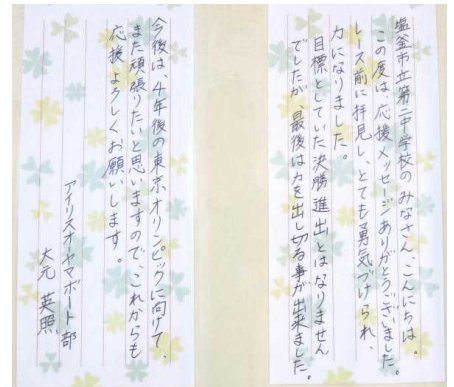 塩釜市立第二中学校のみなさん、こんにちは。
この度は、応援メッセージありがとうございました。
レース前に拝見し、とても勇気づけられ、
力になりました。
目標としていた決勝進出とはなりません
でしたが、最後は力を出し切る事が出来ました。
今後は、4年後の東京オリンピックに向けて、
また頑張りたいと思いますので、これからも
応援よろしくお願いします。
アイリスオーヤマボート部
大元 英照